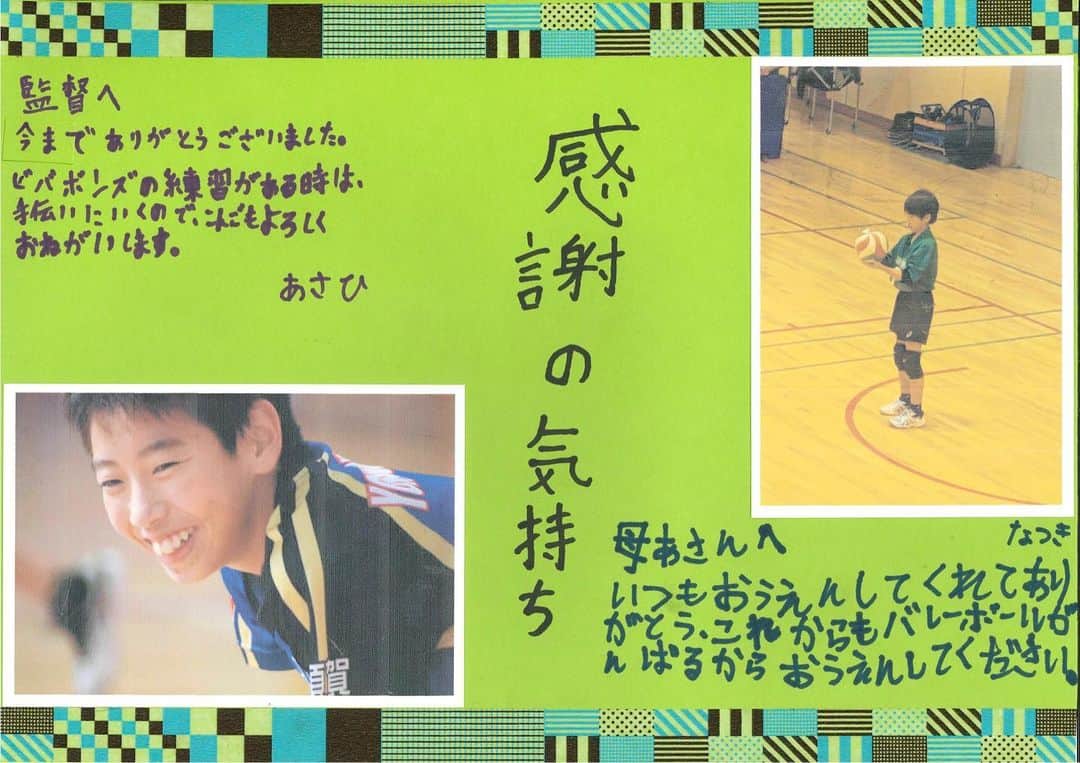 監督へ
今までありがとうございました。
ビバボンズの練習がある時は、
手伝いにいくので、これからもよろしく
おねがいします。
あさひ
感謝の気持ち
なつき
母あさんへ
いつもおうえんしてくれてあり
がとう、これからもバレーボールが
んばるからおうえんしてください。
賀